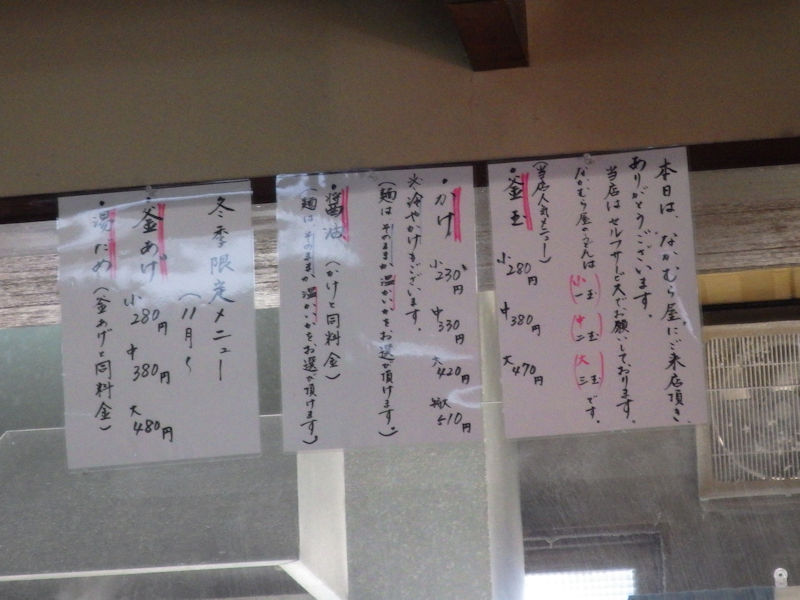 本日は、なかむら屋にご来店頂き、
ありがとうございます。
当店は セルフサービスでお願いしております。
なかむら屋のうどんは (小 一玉) (中 二玉) (大 三玉) です。
(当店人気メニュー)
・釜玉 小280円 中380円 大470円
・かけ 小230円 中330円 大420円 特大510円
※冷やかけもございます。
(麺は そのままか、温かいかをお選び頂けます。)
・醤油 (かけと同料金)
(麺は そのままか、温かいかをお選び頂けます。)
冬季限定メニュー
(11月〜
・釜あげ 小280円 中380円 大480円
・湯ため (釜あげと同料金)